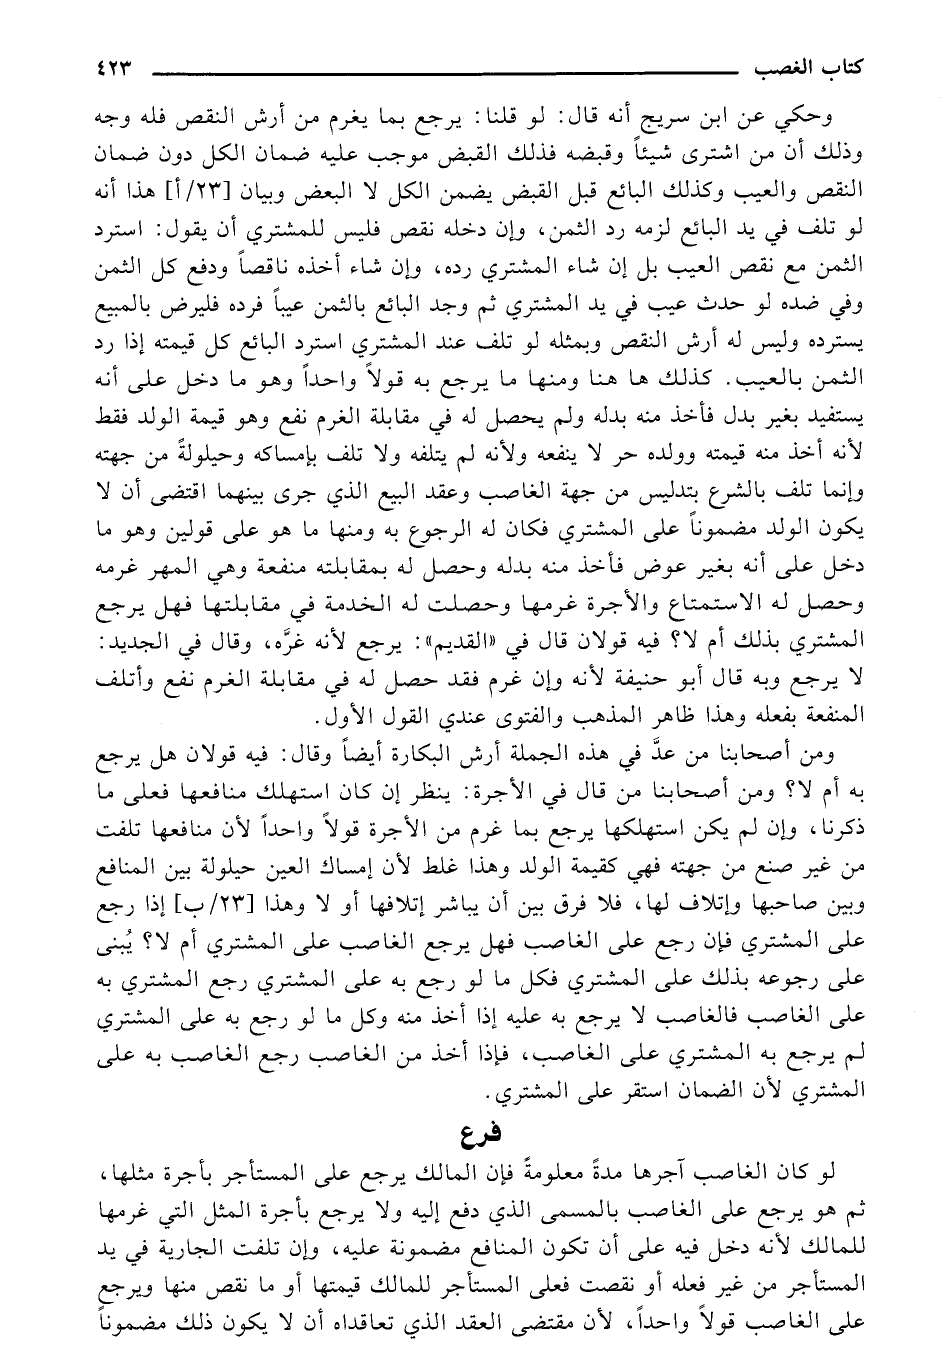 كتاب الغصب ٤٢٣
وحكي عن ابن سريج أنه قال: لو قلنا: يرجع بما يغرم من أرش النقص فله وجه
وذلك أن من اشترى شيئاً وقبضه فذلك القبض موجب عليه ضمان الكل دون ضمان
النقص والعيب وكذلك البائع قبل القبض يضمن الكل لا البعض وبيان [٢٣/ أ] هذا أنه
لو تلف في يد البائع لزمه رد الثمن، وإن دخله نقص فليس للمشتري أن يقول: استرد
الثمن مع نقص العيب بل إن شاء المشتري رده، وإن شاء أخذه ناقصاً ودفع كل الثمن
وفي ضده لو حدث عيب في يد المشتري ثم وجد البائع بالثمن عيباً فرده فليرض بالمبيع
يسترده وليس له أرش النقص وبمثله لو تلف عند المشتري استرد البائع كل قيمته إذا رد
الثمن بالعيب. كذلك ها هنا ومنها ما يرجع به قولاً واحداً وهو ما دخل على أنه
يستفيد بغير بدل فأخذ منه بدله ولم يحصل له في مقابلة الغرم نفع وهو قيمة الولد فقط
لأنه أخذ منه قيمته وولده حر لا ينفعه ولأنه لم يتلفه ولا تلف بإمساكه وحيلولةً من جهته
وإنما تلف بالشرع بتدليس من جهة الغاصب وعقد البيع الذي جرى بينهما اقتضى أن لا
يكون الولد مضموناً على المشتري فكان له الرجوع به ومنها ما هو على قولين وهو ما
دخل على أنه بغير عوض فأخذ منه بدله وحصل له بمقابلته منفعة وهي المهر غرمه
وحصل له الاستمتاع والأجرة غرمها وحصلت له الخدمة في مقابلتها فهل يرجع
المشتري بذلك أم لا؟ فيه قولان قال في «القديم»: يرجع لأنه غرَّه، وقال في الجديد:
لا يرجع وبه قال أبو حنيفة لأنه وإن غرم فقد حصل له في مقابلة الغرم نفع وأتلف
المنفعة بفعله وهذا ظاهر المذهب والفتوى عندي القول الأول.
ومن أصحابنا من عدَّ في هذه الجملة أرش البكارة أيضاً وقال: فيه قولان هل يرجع
به أم لا؟ ومن أصحابنا من قال في الأجرة: ينظر إن كان استهلك منافعها فعلى ما
ذكرنا، وإن لم يكن استهلكها يرجع بما غرم من الأجرة قولاً واحداً لأن منافعها تلفت
من غير صنع من جهته فهي كقيمة الولد وهذا غلط لأن إمساك العين حيلولة بين المنافع
وبين صاحبها وإتلاف لها، فلا فرق بين أن يباشر إتلافها أو لا وهذا [٢٣/ ب] إذا رجع
على المشتري فإن رجع على الغاصب فهل يرجع الغاصب على المشتري أم لا؟ يُبنى
على رجوعه بذلك على المشتري فكل ما لو رجع به على المشتري رجع المشتري به
على الغاصب فالغاصب لا يرجع به عليه إذا أخذ منه وكل ما لو رجع به على المشتري
لم يرجع به المشتري على الغاصب، فإذا أخذ من الغاصب رجع الغاصب به على
المشتري لأن الضمان استقر على المشتري.
فرع
لو كان الغاصب آجرها مدةً معلومةً فإن المالك يرجع على المستأجر بأجرة مثلها،
ثم هو يرجع على الغاصب بالمسمى الذي دفع إليه ولا يرجع بأجرة المثل التي غرمها
للمالك لأنه دخل فيه على أن تكون المنافع مضمونة عليه، وإن تلفت الجارية في يد
المستأجر من غير فعله أو نقصت فعلى المستأجر للمالك قيمتها أو ما نقص منها ويرجع
على الغاصب قولاً واحداً، لأن مقتضى العقد الذي تعاقداه أن لا يكون ذلك مضموناً